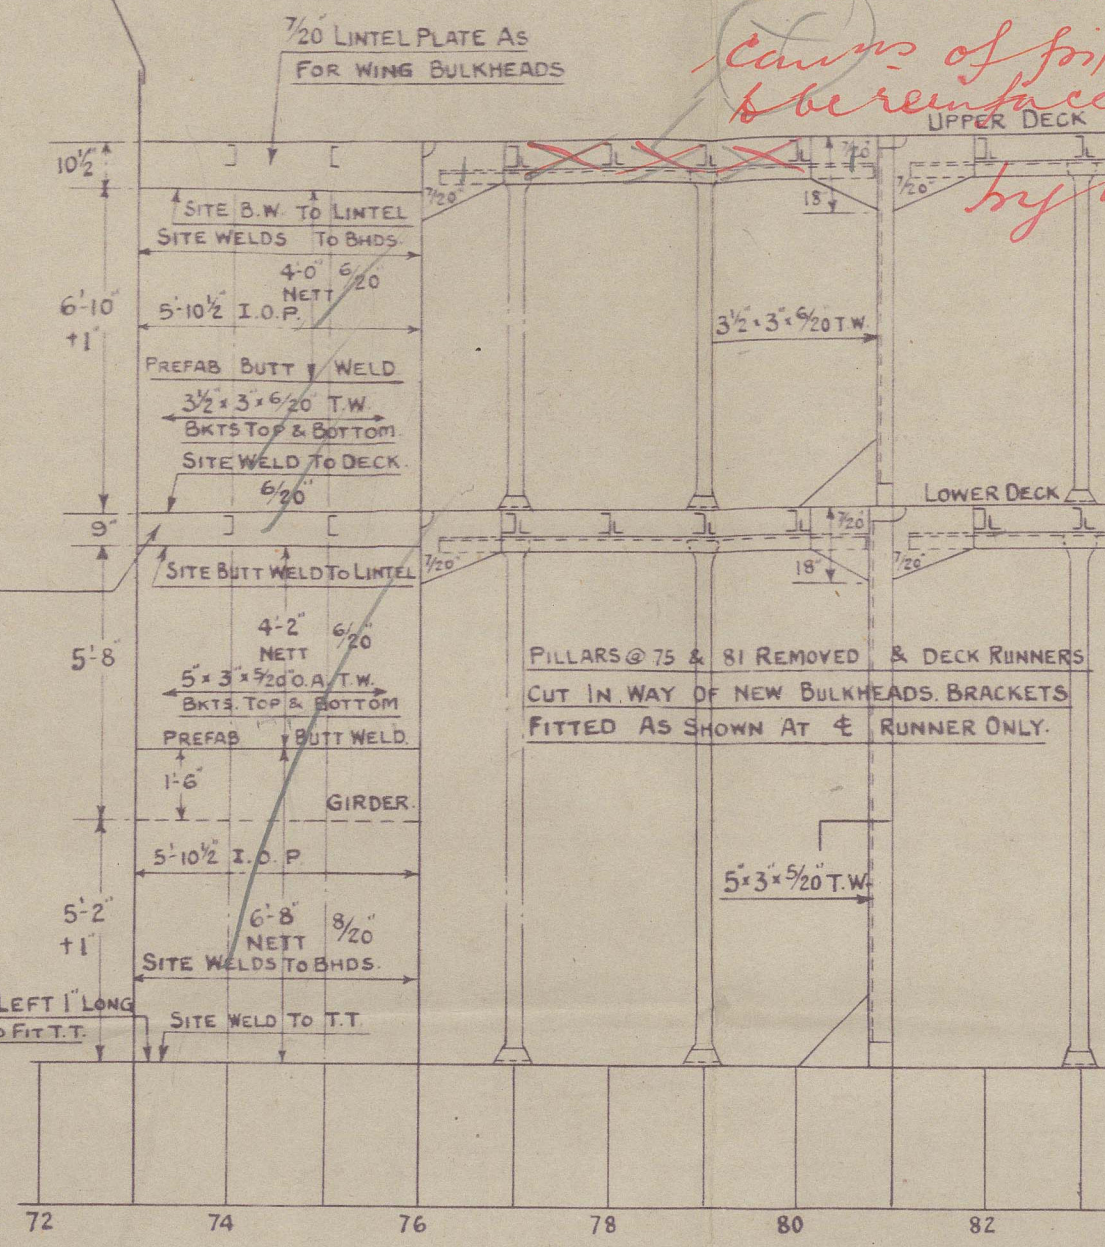 7/20" LINTEL PLATE AS
FOR WING BULKHEADS
of
UPPER DECK
by
10½"
7/20"
7/20"
18"
7/20"
SITE B.W. TO LINTEL
SITE WELDS TO BHDS.
4'-0" 6/20"
NETT
5'-10½" I.O.P.
6'-10"
+1"
3½" × 3" × 6/20" T.W.
PREFAB BUTT WELD
3½" × 3" × 6/20" T.W.
BKTS TOP & BOTTOM.
SITE WELD TO DECK.
6/20"
LOWER DECK
9"
7/20"
7/20"
18"
7/20"
SITE BUTT WELD TO LINTEL
4'-2" 6/20"
NETT
5'-8"
5" × 3" × 5/20" O.A. T.W.
BKTS. TOP & BOTTOM
PREFAB BUTT WELD.
1'-6"
GIRDER.
PILLARS @ 75 & 81 REMOVED & DECK RUNNERS
CUT IN WAY OF NEW BULKHEADS. BRACKETS
FITTED AS SHOWN AT ℄ RUNNER ONLY.
5'-10½" I.O.P.
5" × 3" × 5/20" T.W.
5'-2"
+1"
6'-8" 8/20"
NETT
SITE WELDS TO BHDS.
LEFT 1" LONG
FIT T.T.
SITE WELD TO T.T.
72 74 76 78 80 82